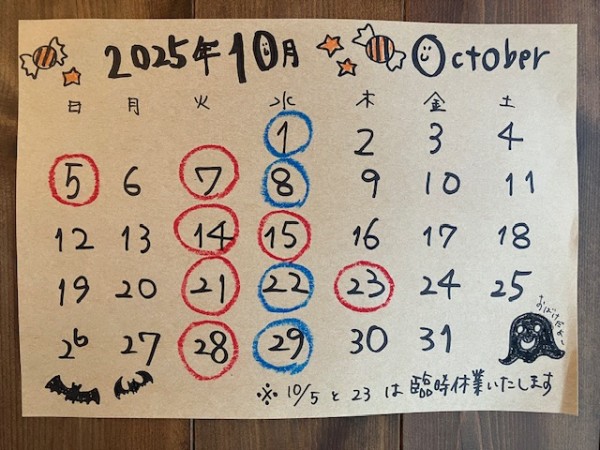 2025年10月 October
日 月 火 水 木 金 土
1 2 3 4
5 6 7 8 9 10 11
12 13 14 15 16 17 18
19 20 21 22 23 24 25
おばけだぞ～
26 27 28 29 30 31
※ 10/5 と 23 は臨時休業いたします